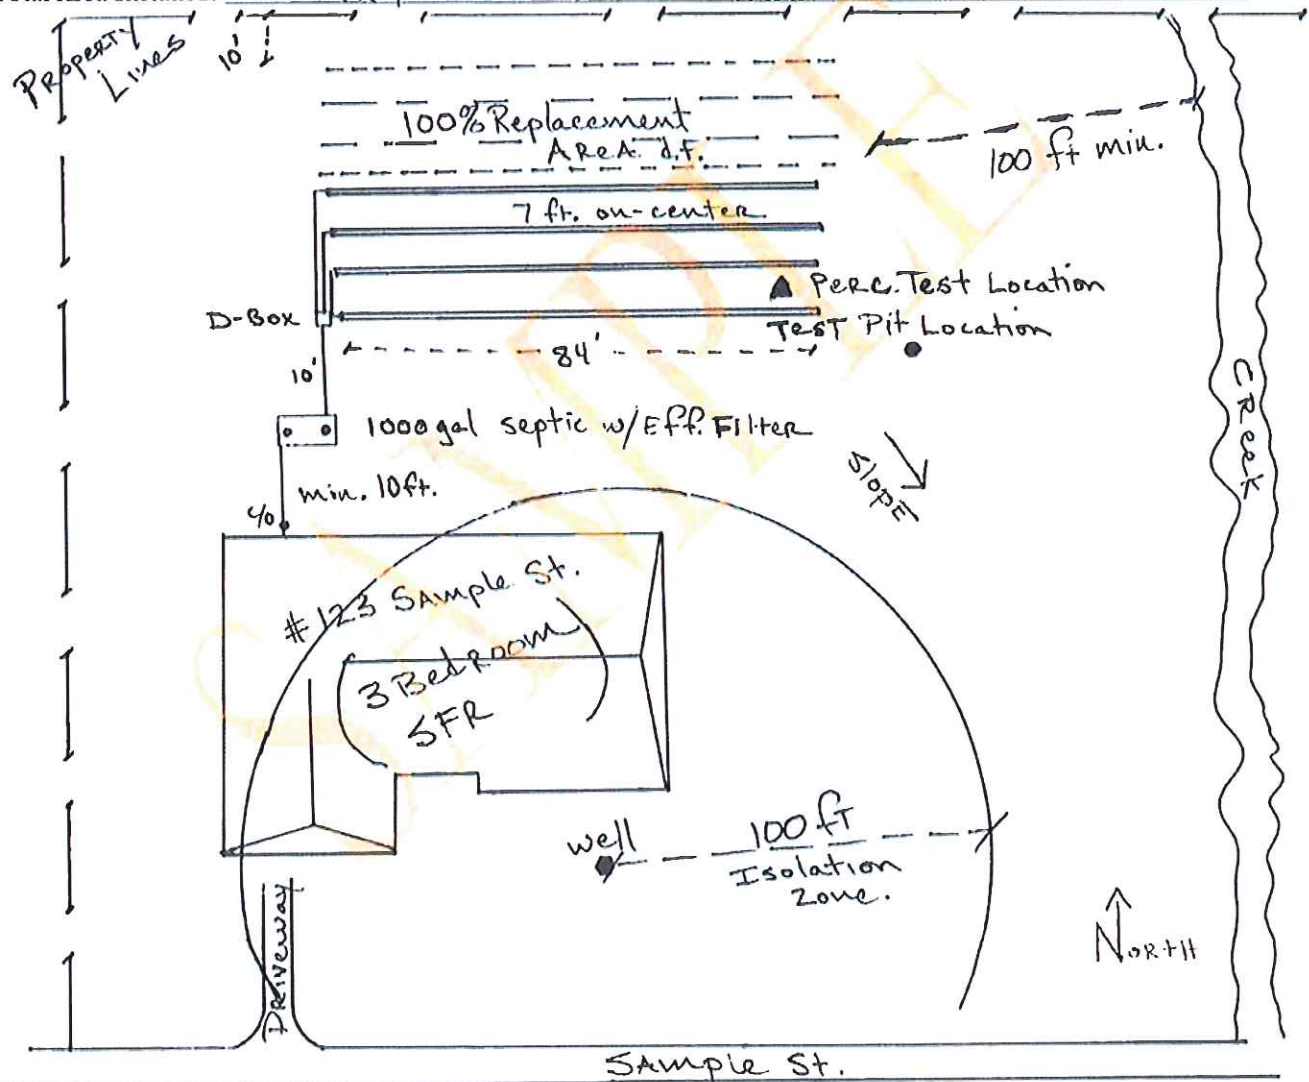 Property
Lines
10'
100% Replacement
Area d.f.
100 ft min.
7 ft. on-center
Perc. Test Location
D-Box
Test Pit Location
84'
10'
1000 gal septic w/Eff. Filter
Creek
Slope
min. 10ft.
c/o
#123 Sample St.
3 Bedroom
SFR
well
100 ft
Isolation
Zone.
North
Driveway
Sample St.
SAMPLE